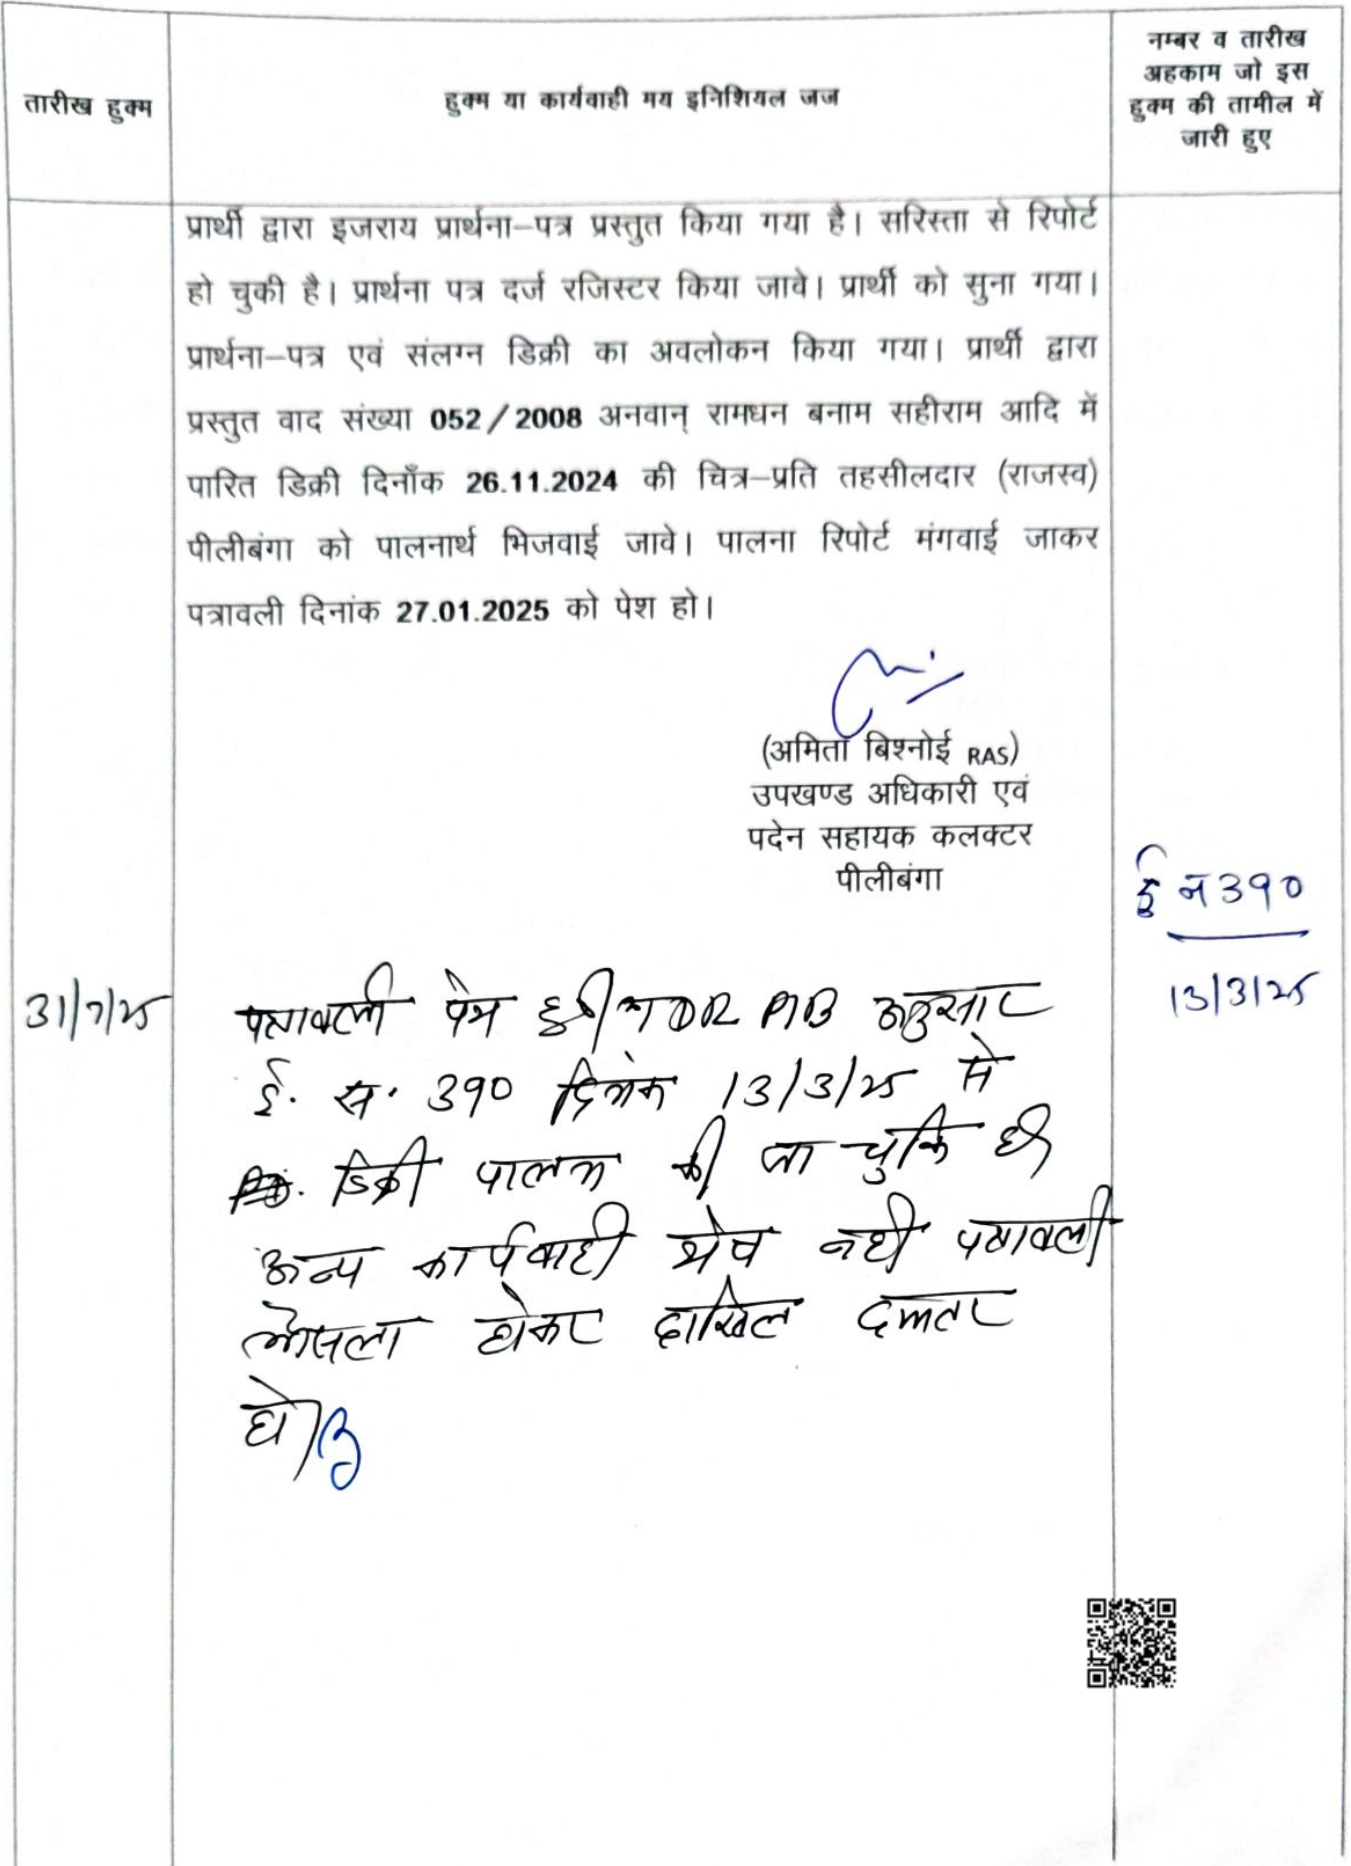 तारीख हुक्म
हुक्म या कार्यवाही मय इनिशियल जज
नम्बर व तारीख
अहकाम जो इस
हुक्म की तामील में
जारी हुए
प्रार्थी द्वारा इजराय प्रार्थना–पत्र प्रस्तुत किया गया है। सरिस्ता से रिपोर्ट
हो चुकी है। प्रार्थना पत्र दर्ज रजिस्टर किया जावे। प्रार्थी को सुना गया।
प्रार्थना–पत्र एवं संलग्न डिक्री का अवलोकन किया गया। प्रार्थी द्वारा
प्रस्तुत वाद संख्या 052/2008 अनवान् रामधन बनाम सहीराम आदि में
पारित डिक्री दिनाँक 26.11.2024 की चित्र–प्रति तहसीलदार (राजस्व)
पीलीबंगा को पालनार्थ भिजवाई जावे। पालना रिपोर्ट मंगवाई जाकर
पत्रावली दिनांक 27.01.2025 को पेश हो।
(अमिता बिश्नोई RAS)
उपखण्ड अधिकारी एवं
पदेन सहायक कलक्टर
पीलीबंगा
ई न 390
13/3/25
31/7/25
पत्रावली पेश हुई TDR PIB अनुसार
ई. स. 390 दिनांक 13/3/25 से
डिक्री पालना की जा चुकि है।
अन्य कार्यवाही शेष नही पत्रावली
फैसला होकर दाखिल दफ्तर
हो।